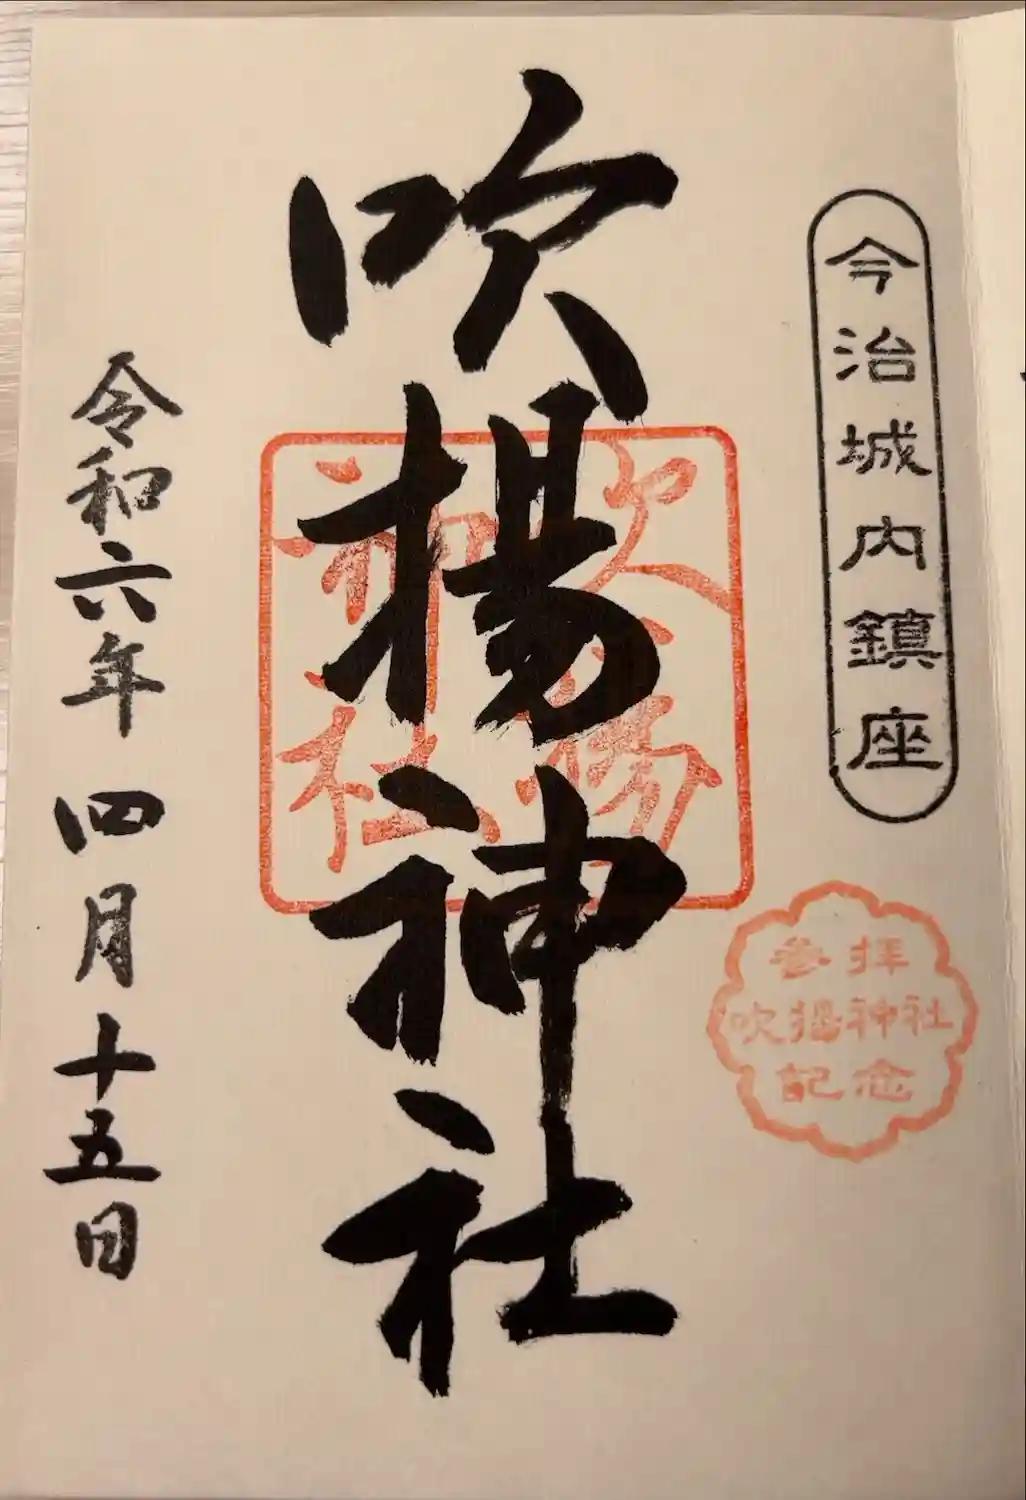 今治城内鎮座
参拝
吹揚神社
記念
吹揚神社
吹揚
神社
令和六年 四月十五日